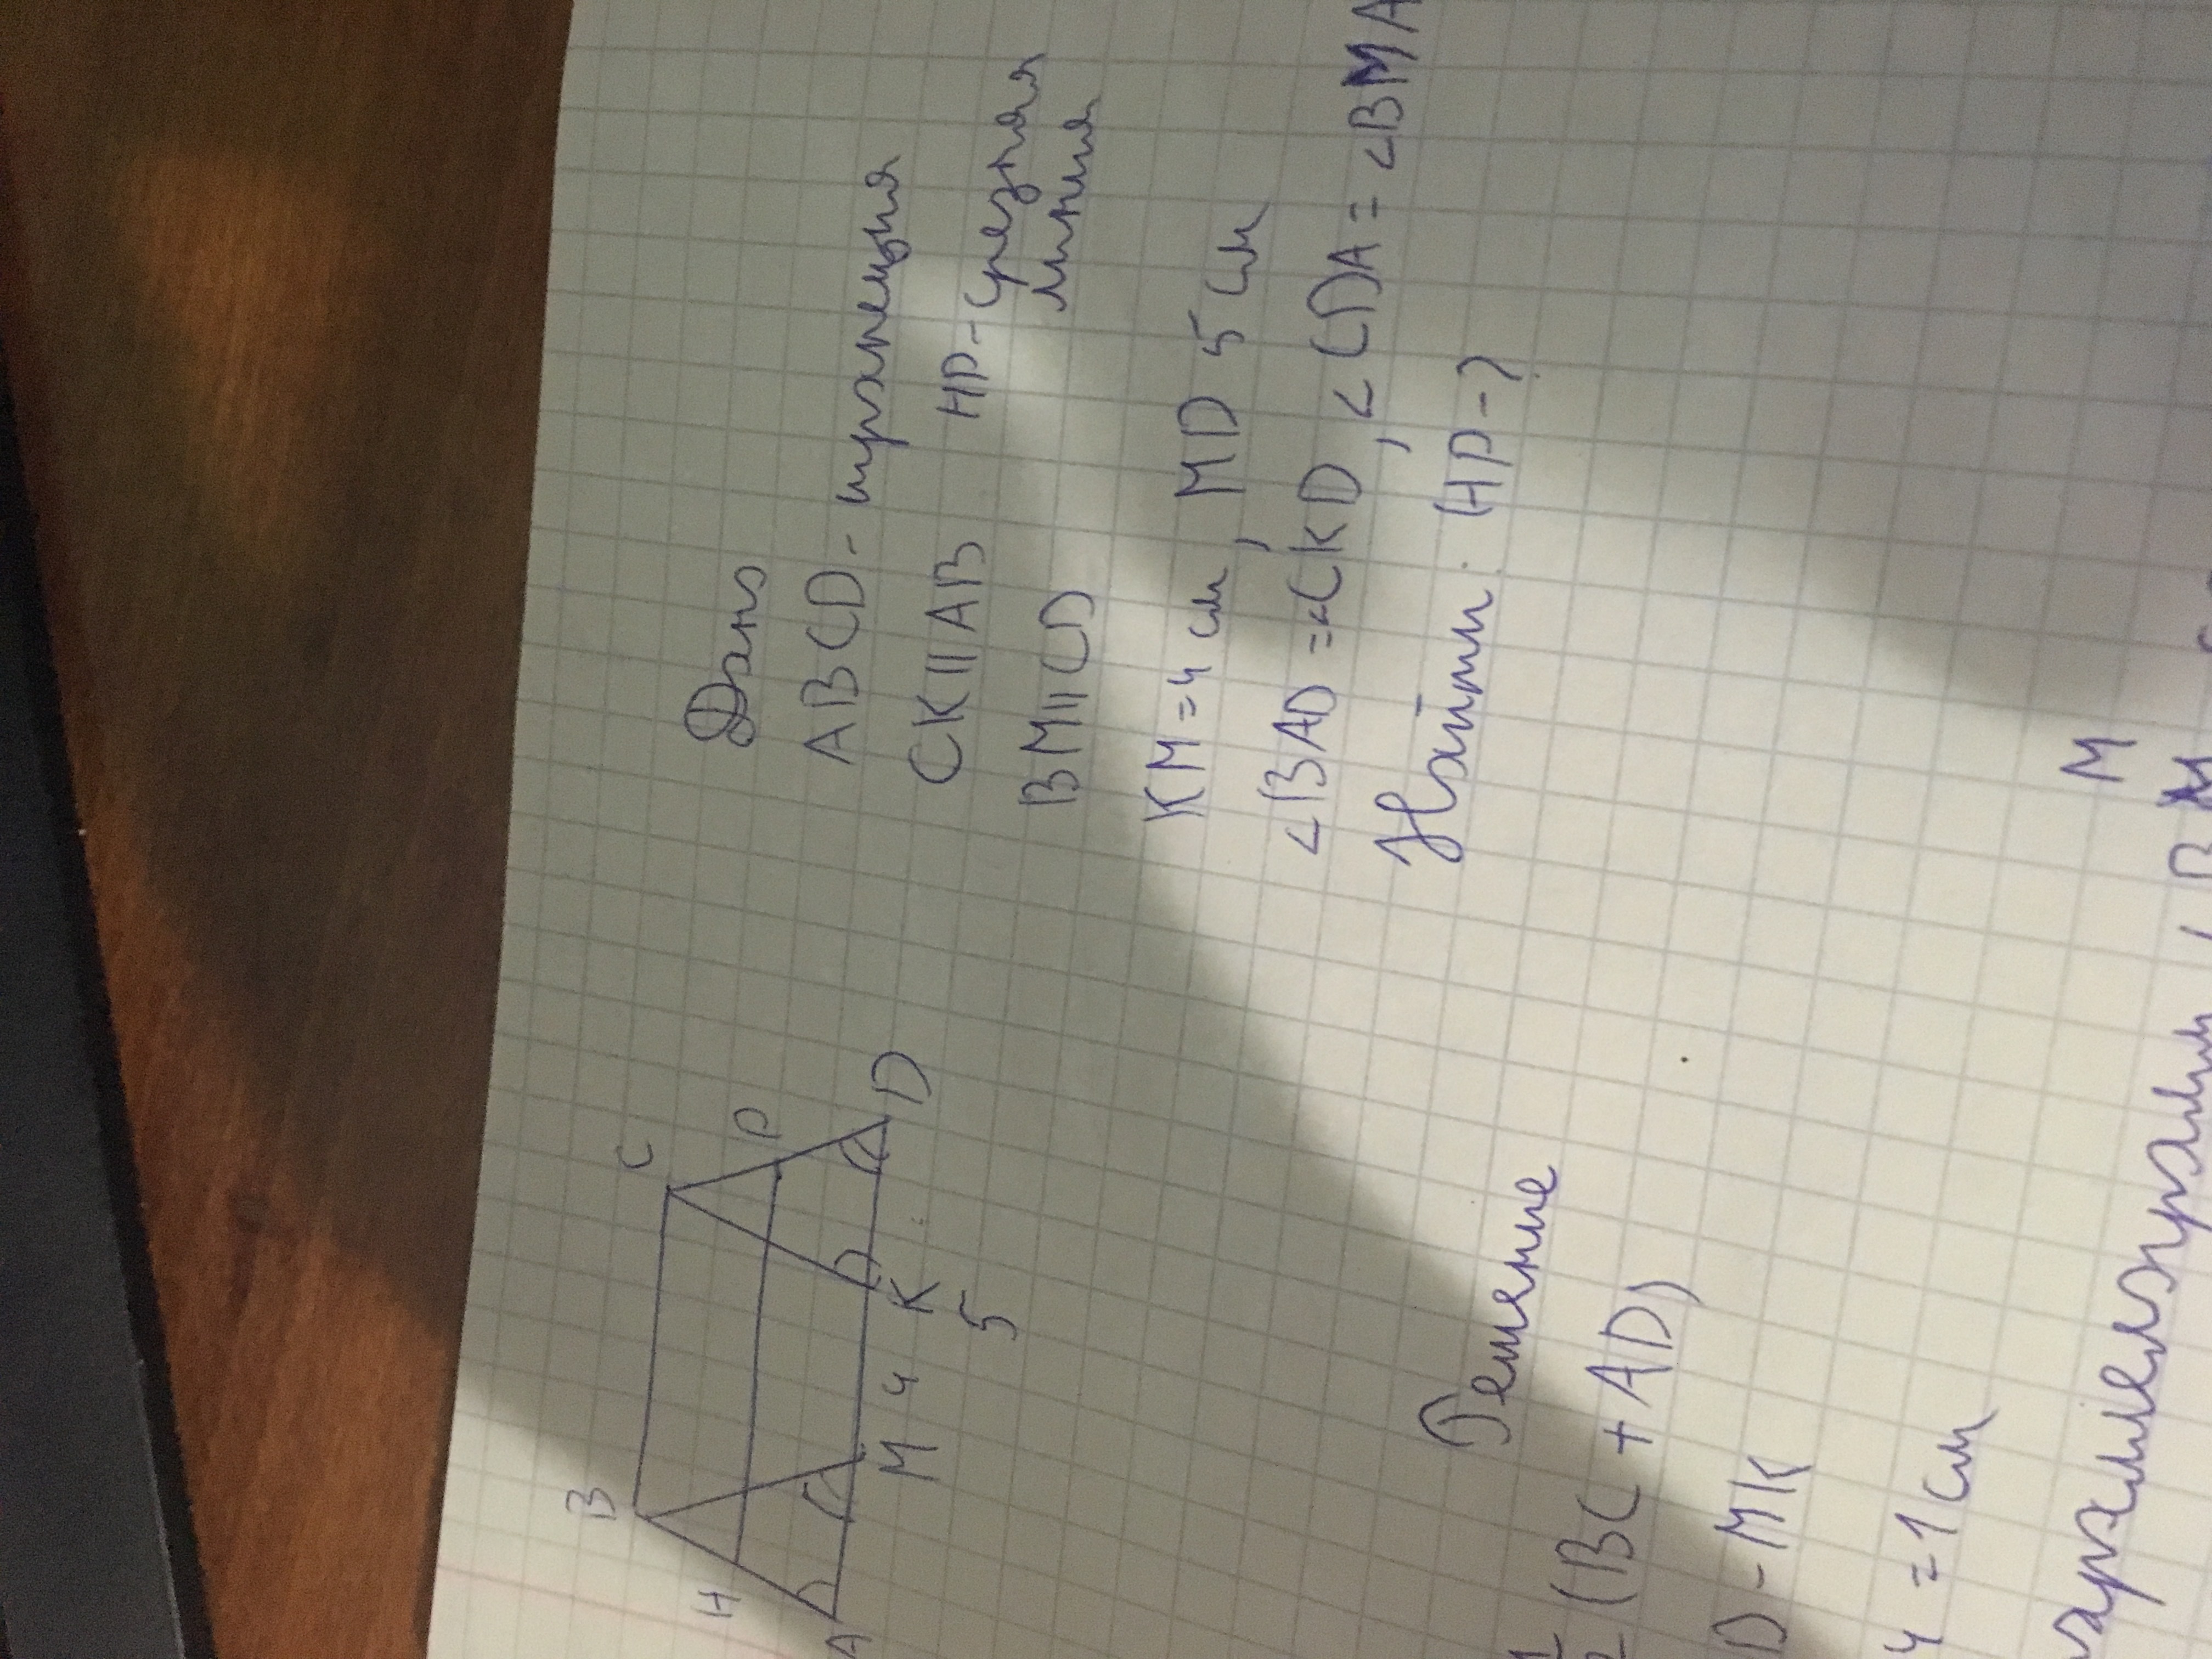 B
C
H
P
A
M 4 K
D
5
Дано
ABCD - трапеция
CK || AB HP - средняя
линия
BM || CD
KM = 4 см, MD 5 см
<BAD = <CKD, <CDA = <BMA
Найти: HP - ?
Решение
(BC + AD)
D - MK
4 = 1 см
M